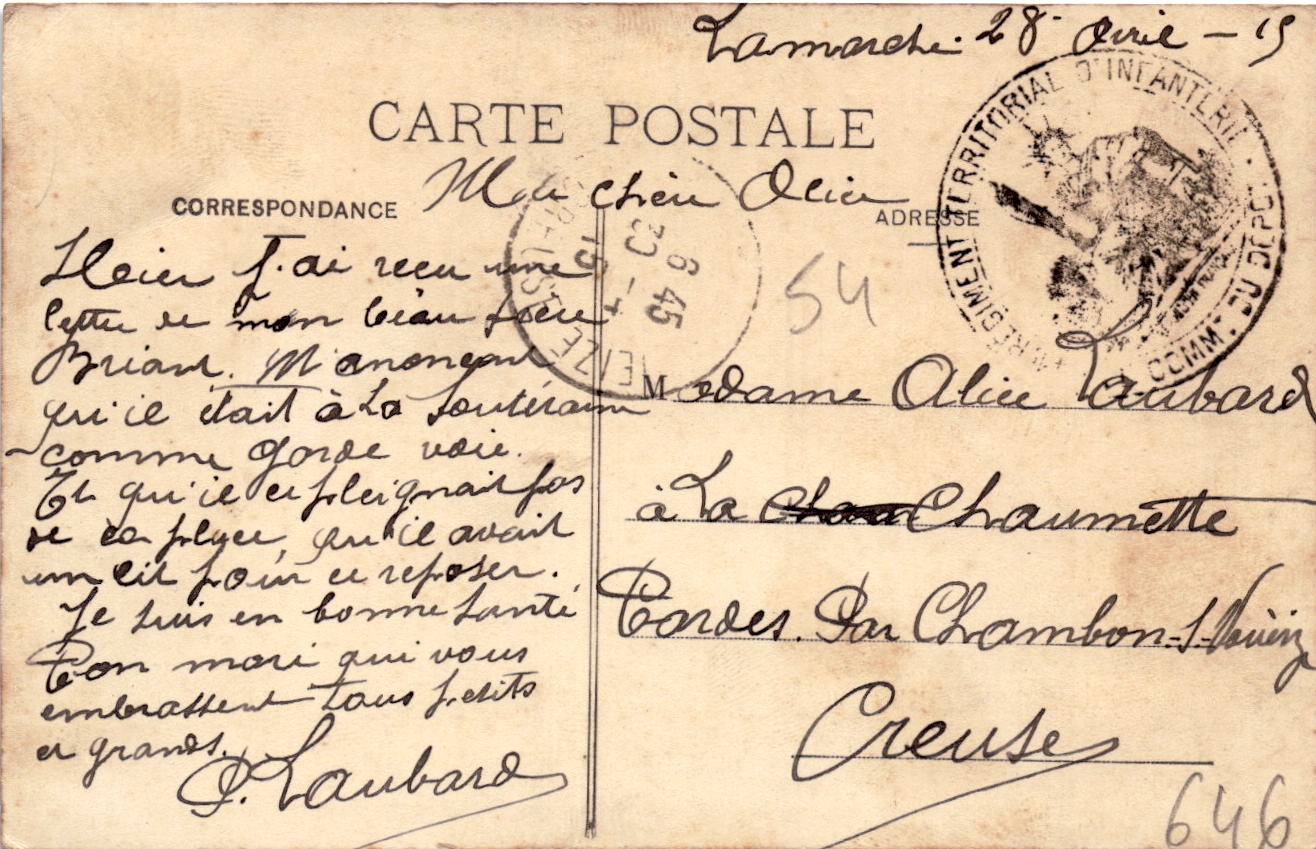 Lamarche. 28 Avril - 15
CARTE POSTALE
Ma chère Alice
CORRESPONDANCE
ADRESSE
Hier j'ai reçu une
lettre de mon beau frère
Briant. M'anonçant
qu'il était à La Souteraine
comme garde voie.
Et qu'il ce pleignait pas
de ça place, qu'il avait
un lit pour ce reposer.
Je suis en bonne santé
Ton mari qui vous
embrassent tous petits
et grands.
P. Laubard
54
Madame Alice Laubard
à La Chaumette
Tardes. Par Chambon-s-Vouèize
Creuse
646
RÉGIMENT TERRITORIAL D'INFANTERIE
COMMT DU DÉPOT
6 45
30 - 4
15